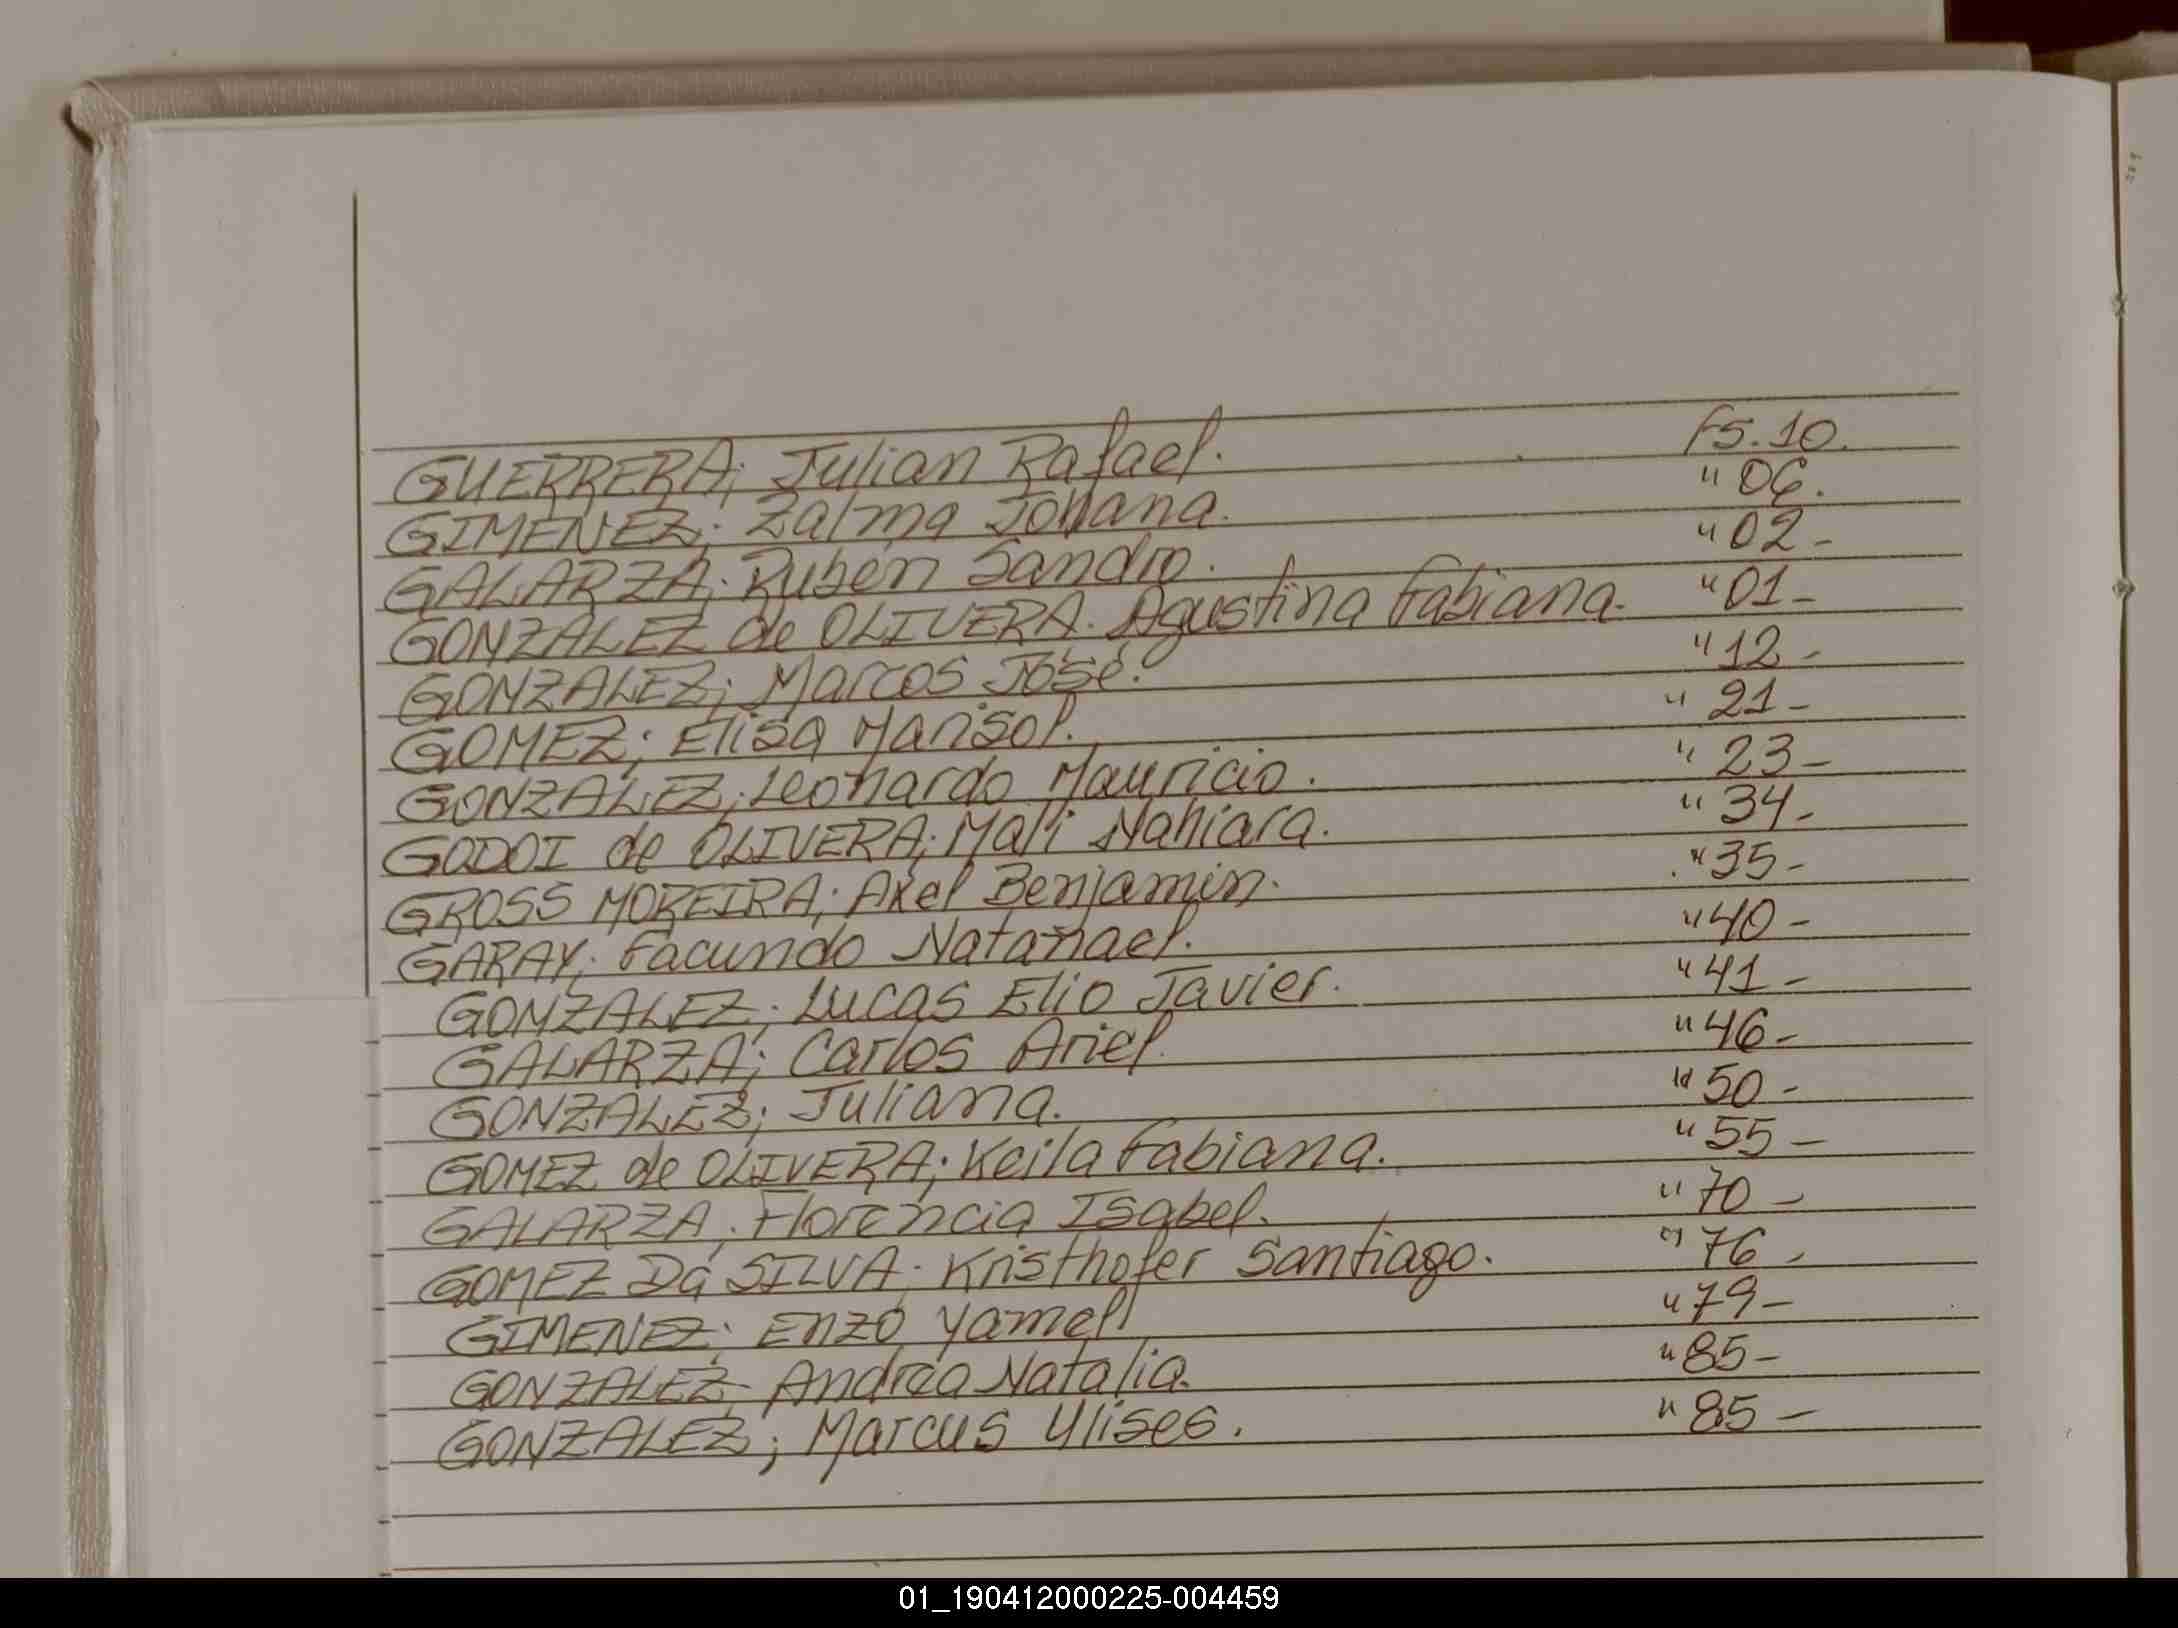 GUERRERA; Julian Rafael. Fs. 10.
GIMENEZ; Zalma Johana. " 06.
GALARZA; Rubén Sandro. " 02 -
GONZALEZ de OLIVERA. Agustina Fabiana. " 01 -
GONZALEZ; Marcos José. " 12 -
GOMEZ; Elisa Marisol. " 21 -
GONZALEZ; Leonardo Mauricio. " 23 -
GODOI de OLIVERA; Mali Nahiara. " 34 -
GROSS MOREIRA; Axel Benjamin. " 35 -
GARAY; Facundo Natanael. " 40 -
GONZALEZ; Lucas Elio Javier. " 41 -
GALARZA; Carlos Ariel. " 46 -
GONZALEZ; Juliana. " 50 -
GOMEZ de OLIVERA; Keila Fabiana. " 55 -
GALARZA; Florencia Isabel. " 70 -
GOMEZ Da SILVA; Kristhofer Santiago. " 76 -
GIMENEZ; Enzo Yamel " 79 -
GONZALEZ; Andrea Natalia. " 85 -
GONZALEZ; Marcus Ulises. " 85 -
01_190412000225-004459